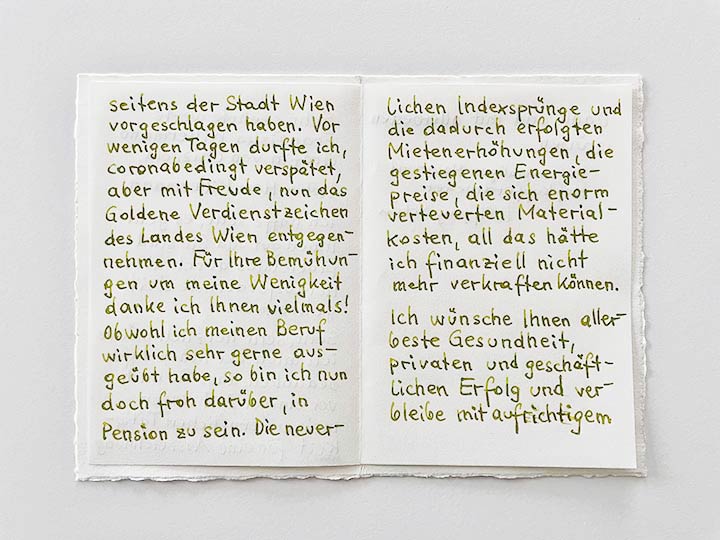 seitens der Stadt Wien
vorgeschlagen haben. Vor
wenigen Tagen durfte ich,
coronabedingt verspätet,
aber mit Freude, nun das
Goldene Verdienstzeichen
des Landes Wien entgegen-
nehmen. Für Ihre Bemühun-
gen um meine Wenigkeit
danke ich Ihnen vielmals!
Obwohl ich meinen Beruf
wirklich sehr gerne aus-
geübt habe, so bin ich nun
doch froh darüber, in
Pension zu sein. Die neuer-
lichen Indexsprünge und
die dadurch erfolgten
Mietenerhöhungen, die
gestiegenen Energie-
preise, die sich enorm
verteuerten Material-
kosten, all das hätte
ich finanziell nicht
mehr verkraften können.
Ich wünsche Ihnen aller-
beste Gesundheit,
privaten und geschäft-
lichen Erfolg und ver-
bleibe mit aufrichtigem